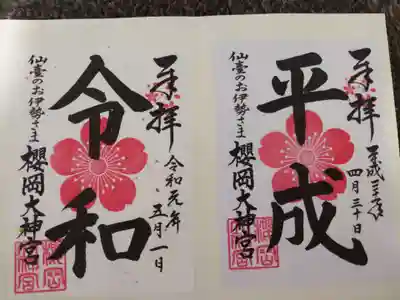 奉拝
平成三十一年
四月三十日
平成
仙臺のお伊勢さま
櫻岡大神宮
奉拝
令和元年
五月一日
令和
仙臺のお伊勢さま
櫻岡大神宮